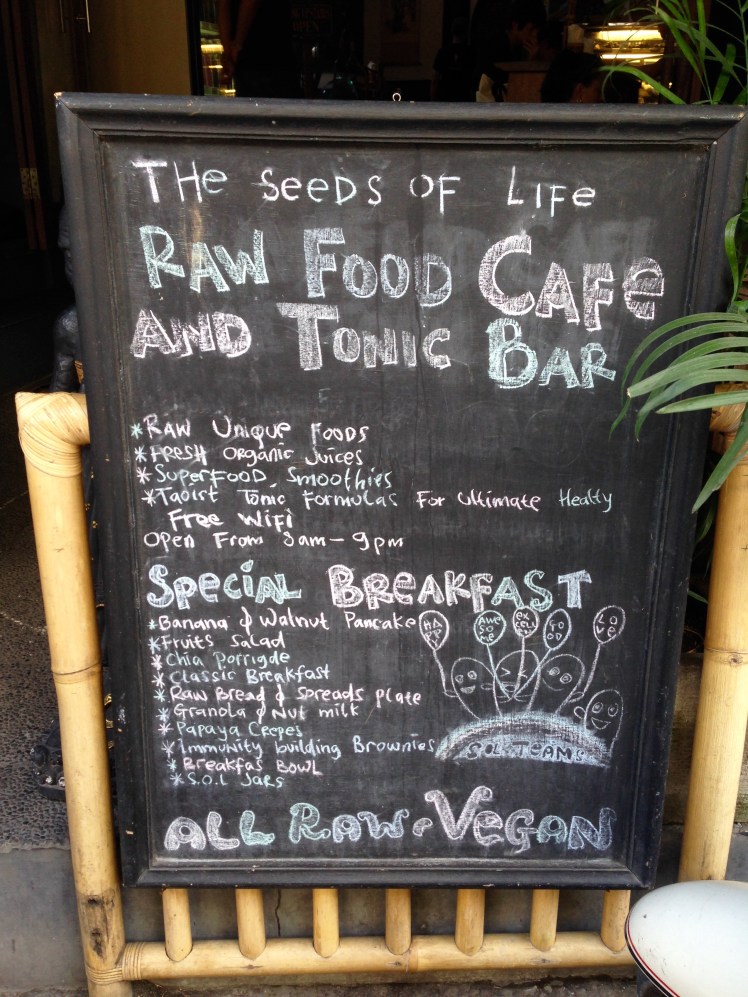 THe SeeDS OF LiFe
RAW FOOD CAFe
AND TONIC BAR
*RAW UNiQUe FOODS
*FResH ORganic Juices
*SUPeRFOOD, Smoothies
*Taoist Tonic Formulas For Ultimate Healty
FRee WiFi
Open From 8am - 9pm
SPeCiAL BREAKFAST
*Banana & Walnut Pancake
*FRuits Salad
*Chia Porrigde
*Classic Breakfast
*Raw Bread & Spreads Plate
*Granola & Nut milk
*Papaya Crepes
*Immunity building Brownies
*Breakfas Bowl
*S.O.L Jars
HAPPY
AWESOME
EXCELLENT
GOOD
LOVE
S.O.L TEAMS
ALL RAW - VEGAN